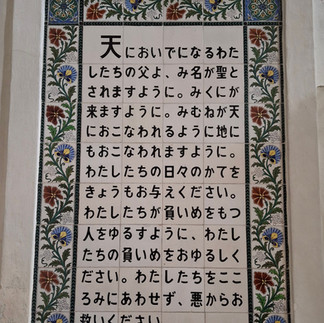 天においでになるわた
したちの父よ、み名が聖と
されますように。みくにが
来ますように。みむねが天
におこなわれるように地に
もおこなわれますように。
わたしたちの日々のかてを
きょうもお与えください。
わたしたちが負いめをもつ
人をゆるすように、わたし
たちの負いめをおゆるしく
ださい。わたしたちをここ
ろみにあわせず、悪からお
救いください